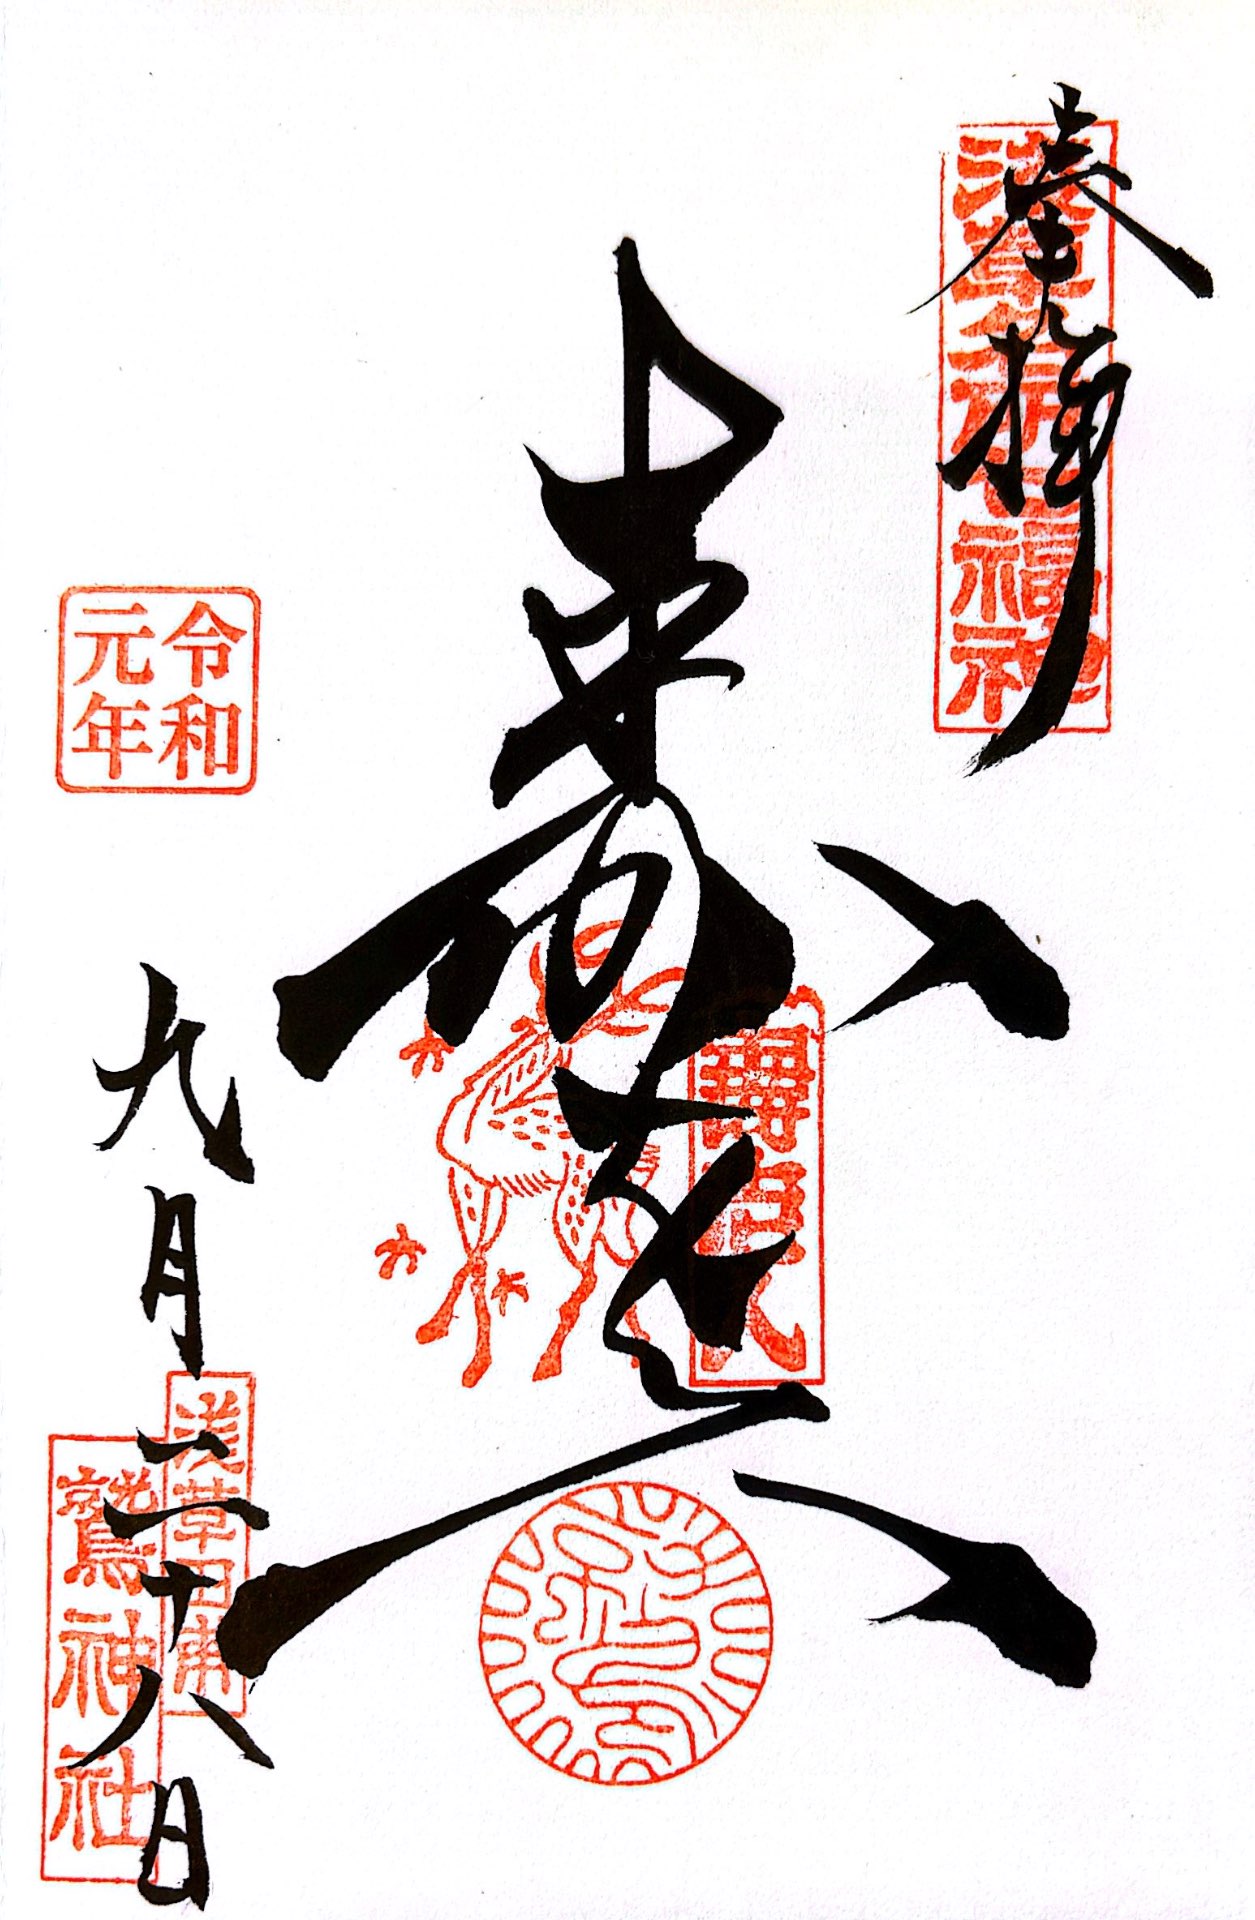 奉拝
浅草名所七福神
寿老人
寿老人
令和
元年
九月二十八日
浅草田甫
鷲神社